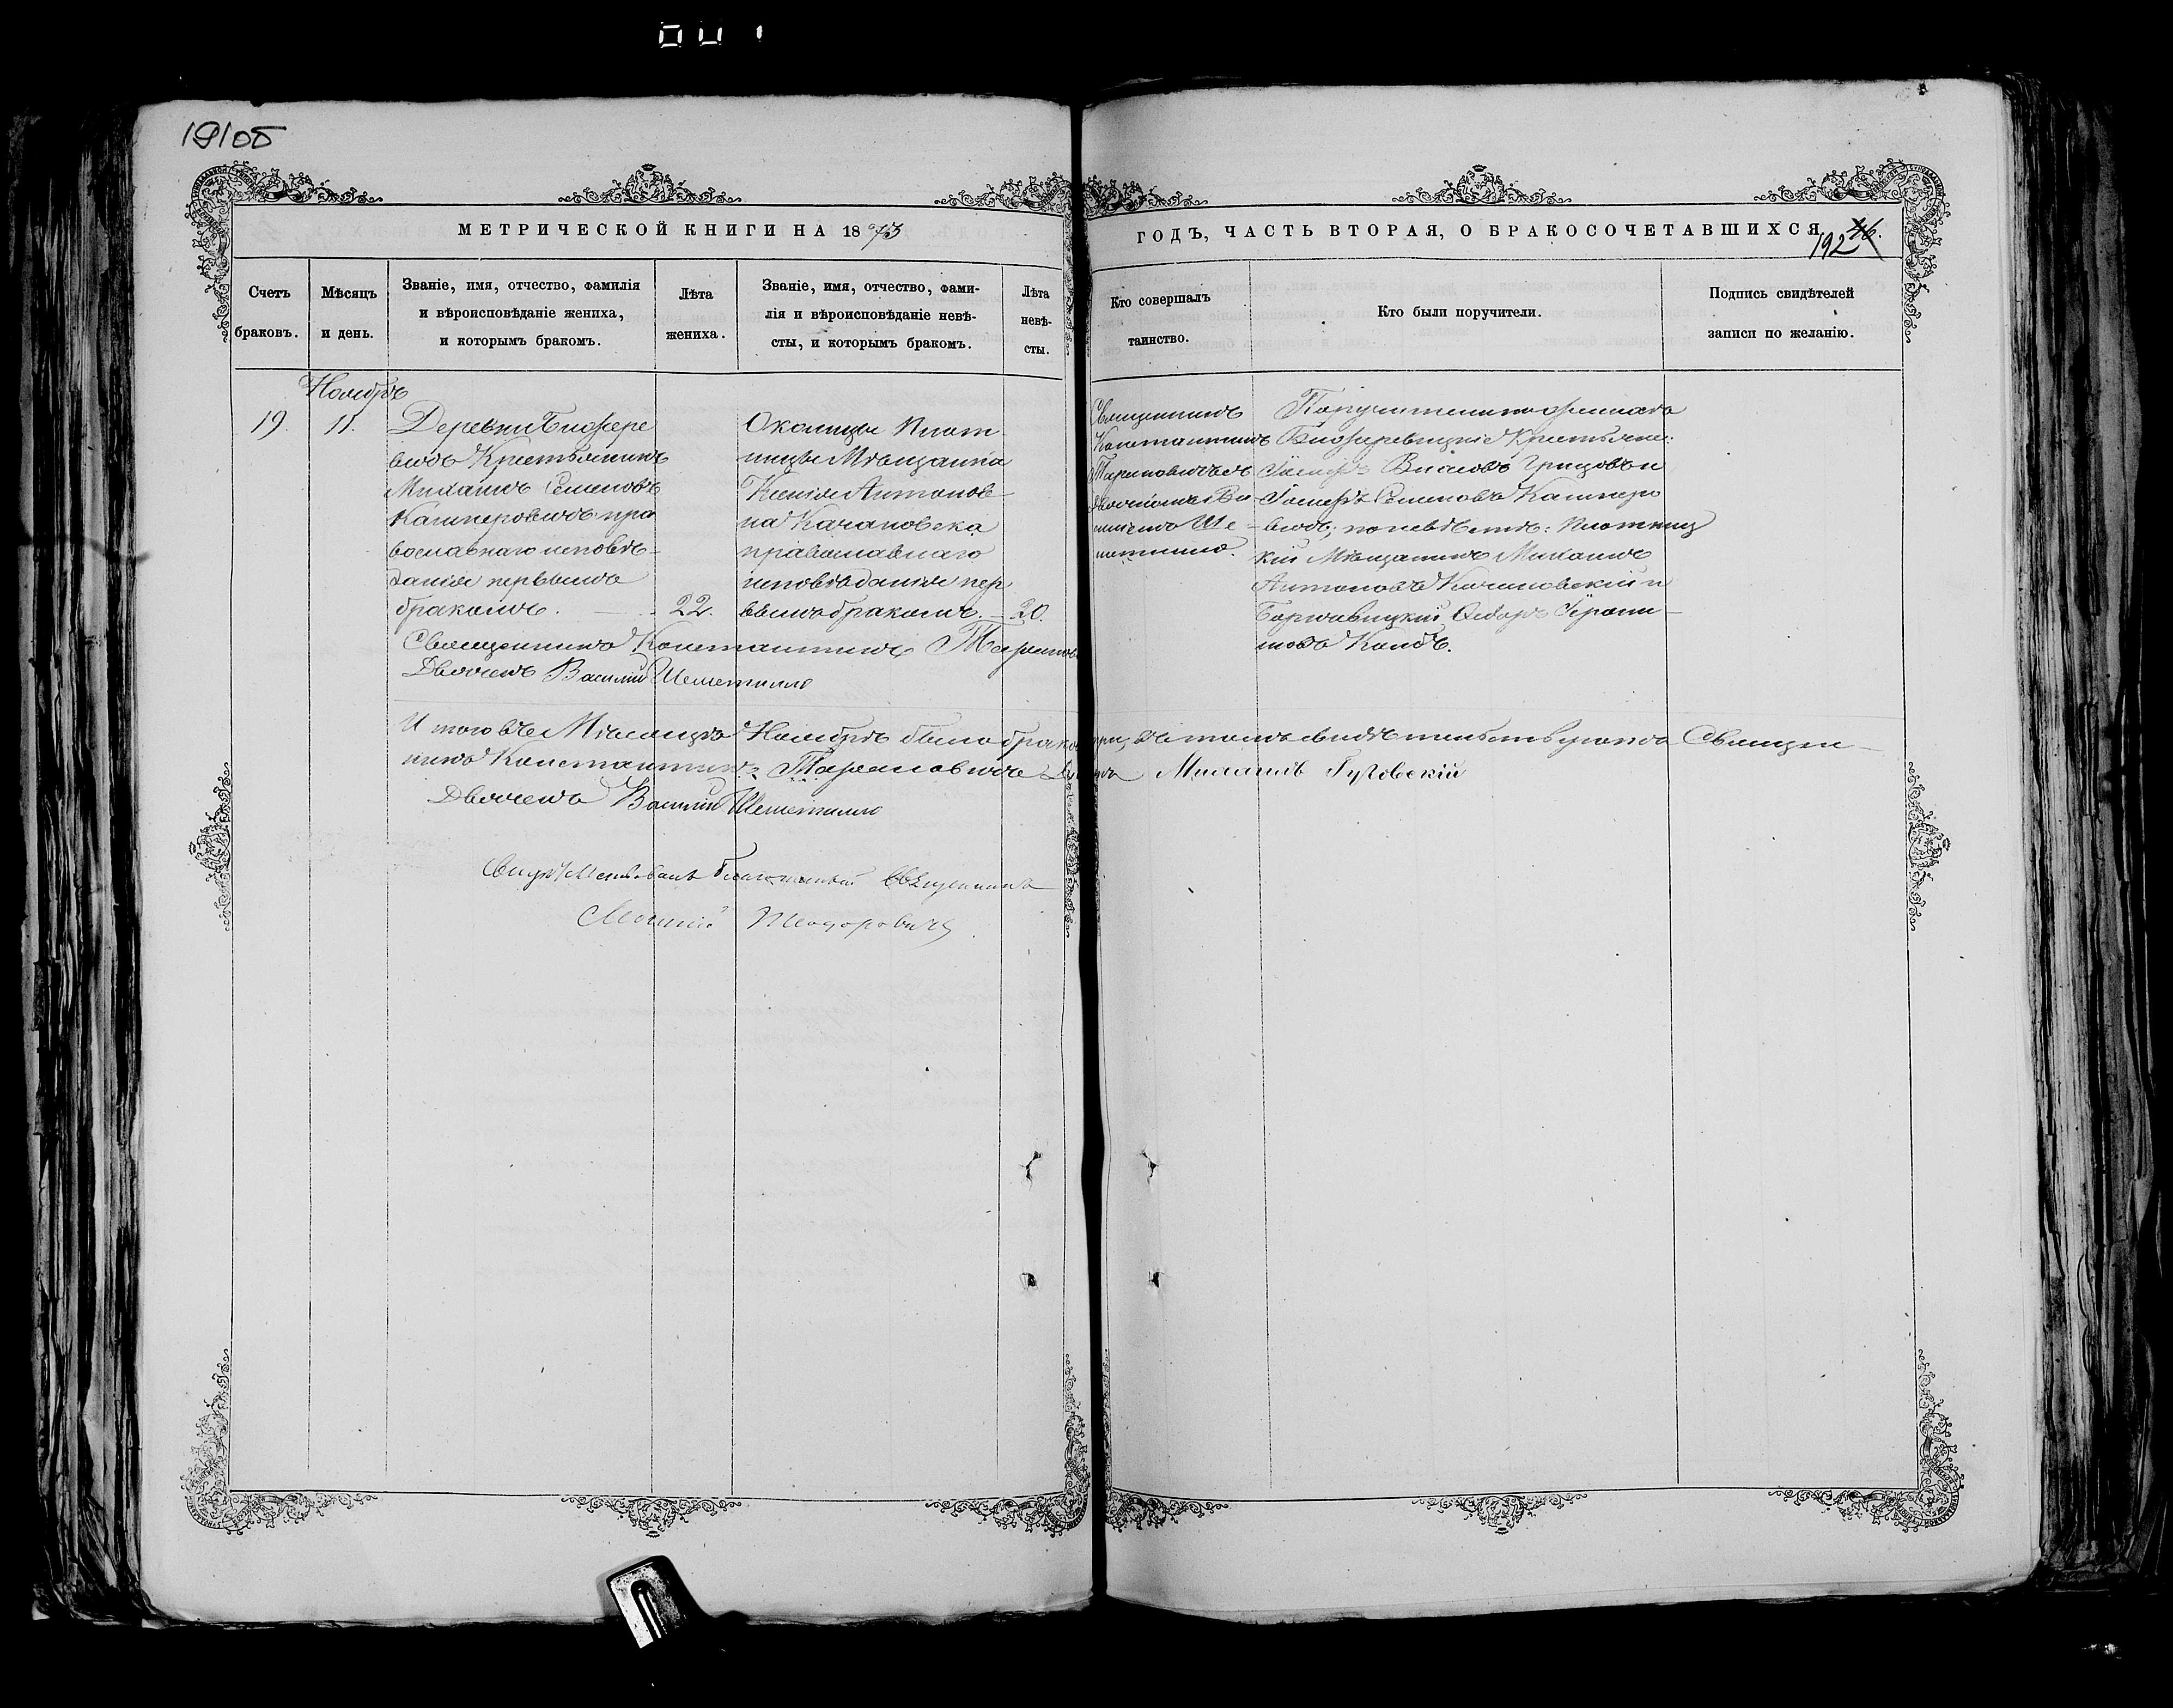 001
191об
МЕТРИЧЕСКОЙ КНИГИ НА 1873
ГОДЪ, ЧАСТЬ ВТОРАЯ, О БРАКОСОЧЕТАВШИХСЯ
192
Счетъ
браковъ.
Мѣсяцъ
и день.
Званіе, имя, отчество, фамилія
и вѣроисповѣданіе жениха,
и которымъ бракомъ.
Лѣта
жениха.
Званіе, имя, отчество, фами-
лія и вѣроисповѣданіе невѣ-
сты, и которымъ бракомъ.
Лѣта
невѣ-
сты.
Кто совершалъ
таинство.
Кто были поручители.
Подпись свидѣтелей
записи по желанію.
Ноябрь
19.
11.
Деревни Біожере
вичъ Крестьянинъ
Михаилъ Семеновъ
Кашперовичъ пра
вославнаго исповѣ-
данія первымъ
бракомъ.
22.
Околицы Плот-
ницы Мѣщанка
Ксенія Антонов-
на Качановска
православнаго
исповѣданія пер
вымъ бракомъ.
20.
Священникъ
Константинъ
Тарановичъ съ
дьячкомъ Ва-
силіемъ Ше-
метилло.
Поручители по женихѣ
Біожеревицкіе Крестьяне:
Іосифъ Власовъ Грицовъ и
Іосифъ Семеновъ Кашперо
вичъ; по невѣстѣ: Плотниц
кій Мѣщанинъ Михаилъ
Антоновъ Качановскій и
Ѳедоръ
Священникъ Константинъ Тарановичъ
Дьячекъ Василій Шеметилло
И того въ Мѣсяцѣ Ноябрѣ было браковъ три, въ томъ свидѣтельствуютъ Священ-
никъ Константинъ Тарановичъ
Дьячекъ Василій Шеметилло
Свидѣтельствовалъ Благочинный Священникъ
Ѳеодоровичъ